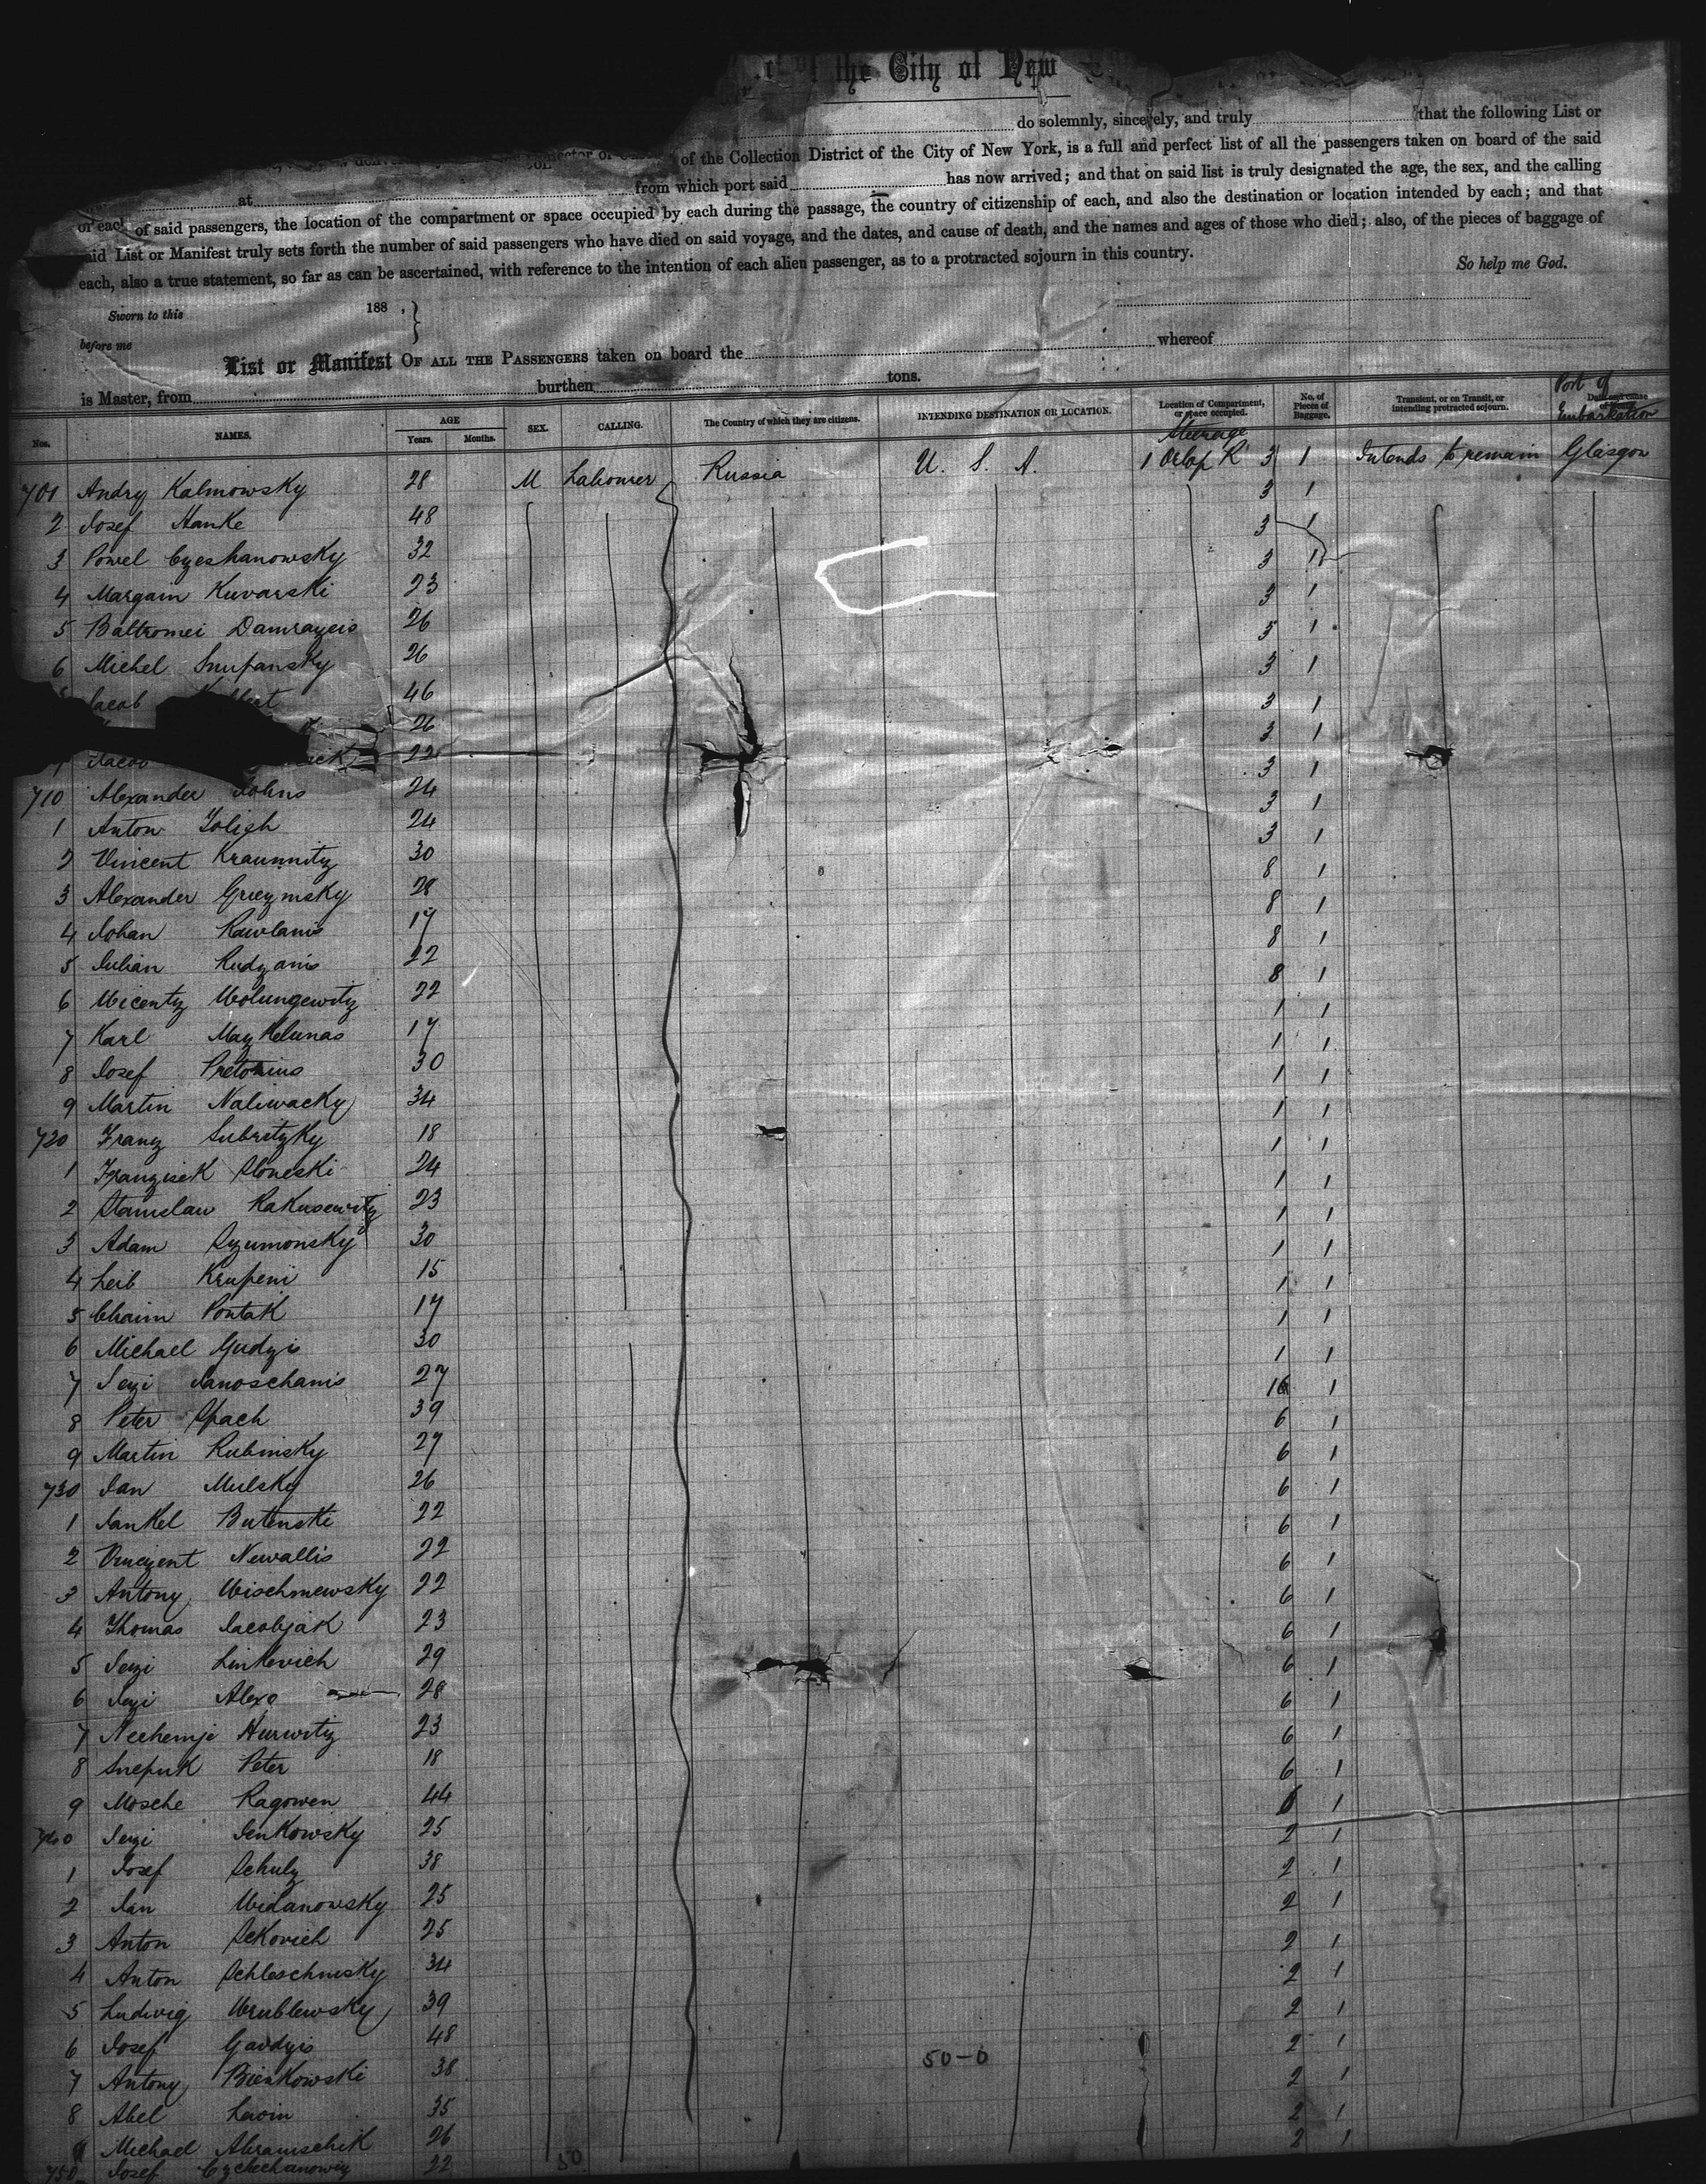 of the City of New
do solemnly, sincerely, and truly that the following List or
of the Collection District of the City of New York, is a full and perfect list of all the passengers taken on board of the said
at from which port said has now arrived; and that on said list is truly designated the age, the sex, and the calling
of said passengers, the location of the compartment or space occupied by each during the passage, the country of citizenship of each, and also the destination or location intended by each; and that
said List or Manifest truly sets forth the number of said passengers who have died on said voyage, and the dates, and cause of death, and the names and ages of those who died; also, of the pieces of baggage of
each, also a true statement, so far as can be ascertained, with reference to the intention of each alien passenger, as to a protracted sojourn in this country. So help me God.
Sworn to this 188 , }
before me
List or Manifest OF ALL THE PASSENGERS taken on board the whereof
is Master, from burthen tons.
Nos. NAMES. AGE Years. Months. SEX. CALLING. The Country of which they are citizens. INTENDING DESTINATION OR LOCATION. Location of Compartment, or space occupied. No. of Pieces of Baggage. Transient, or on Transit, or intending protracted sojourn. Port of Embarkation
Steerage
701 Andry Kalmowsky 28 M Labourer Russia U. S. A. 1 Orlop R 3 1 Intends to remain Glasgow
2 Josef Hanke 48 3 1
3 Powel Czeshanowsky 32 3 1
4 Margain Kuvarski 23 3 1
5 Baltromei Damrazeis 26 3 1
6 Michel Snupansky 26 5 1
Jacob 46 3 1
26 3 1
Jacob 22 3 1
710 Alexander Johns 24 3 1
1 Anton Joligh 24 3 1
2 Vincent Kraunnitz 30 3 1
3 Alexander Gruzmsky 28 8 1
4 Johan Rawlanis 17 8 1
5 Julian Rudzanis 22 8 1
6 Wicenty Wolungewitz 22 8 1
7 Karl Maykelunas 17 1 1
8 Josef Pretorius 30 1 1
9 Martin Naliwacky 34 1 1
720 Franz Subritzky 18 1 1
1 Franzisek Sloneski 24 1 1
2 Stanislaw Rakusewitz 23 1 1
3 Adam Szumonsky 30 1 1
4 Leib Krupeni 15 1 1
5 Chaim Pontak 17 1 1
6 Michael Gudzis 30 1 1
7 Jerzi Janoschanis 27 1 1
8 Peter Spach 39 16 1
9 Martin Rubinsky 27 6 1
730 Jan Mulsky 26 6 1
1 Jankel Butenski 22 6 1
2 Vincent Newallis 22 6 1
3 Antony Wischnewsky 22 6 1
4 Thomas Jacobjak 23 6 1
5 Jerzi Linkevich 29 6 1
6 Jerzi Alexo 28 6 1
7 Nechemje Hurwitz 23 6 1
8 Snepuk Peter 18 6 1
9 Mosche Ragowen 44 6 1
740 Jerzi Jenkowsky 25 6 1
1 Josef Schulz 38 2 1
2 Jan Widanowsky 25 2 1
3 Anton Sekovich 25 2 1
4 Anton Schleschnisky 34 2 1
5 Ludwig Wrublewsky 39 2 1
6 Josef Gavdzis 48 2 1
7 Antony Bienkowski 38 50-0 2 1
8 Abel Levin 35 2 1
9 Michael Abramschik 26 2 1
750 Josef Czechanowiz 22 50 2 1